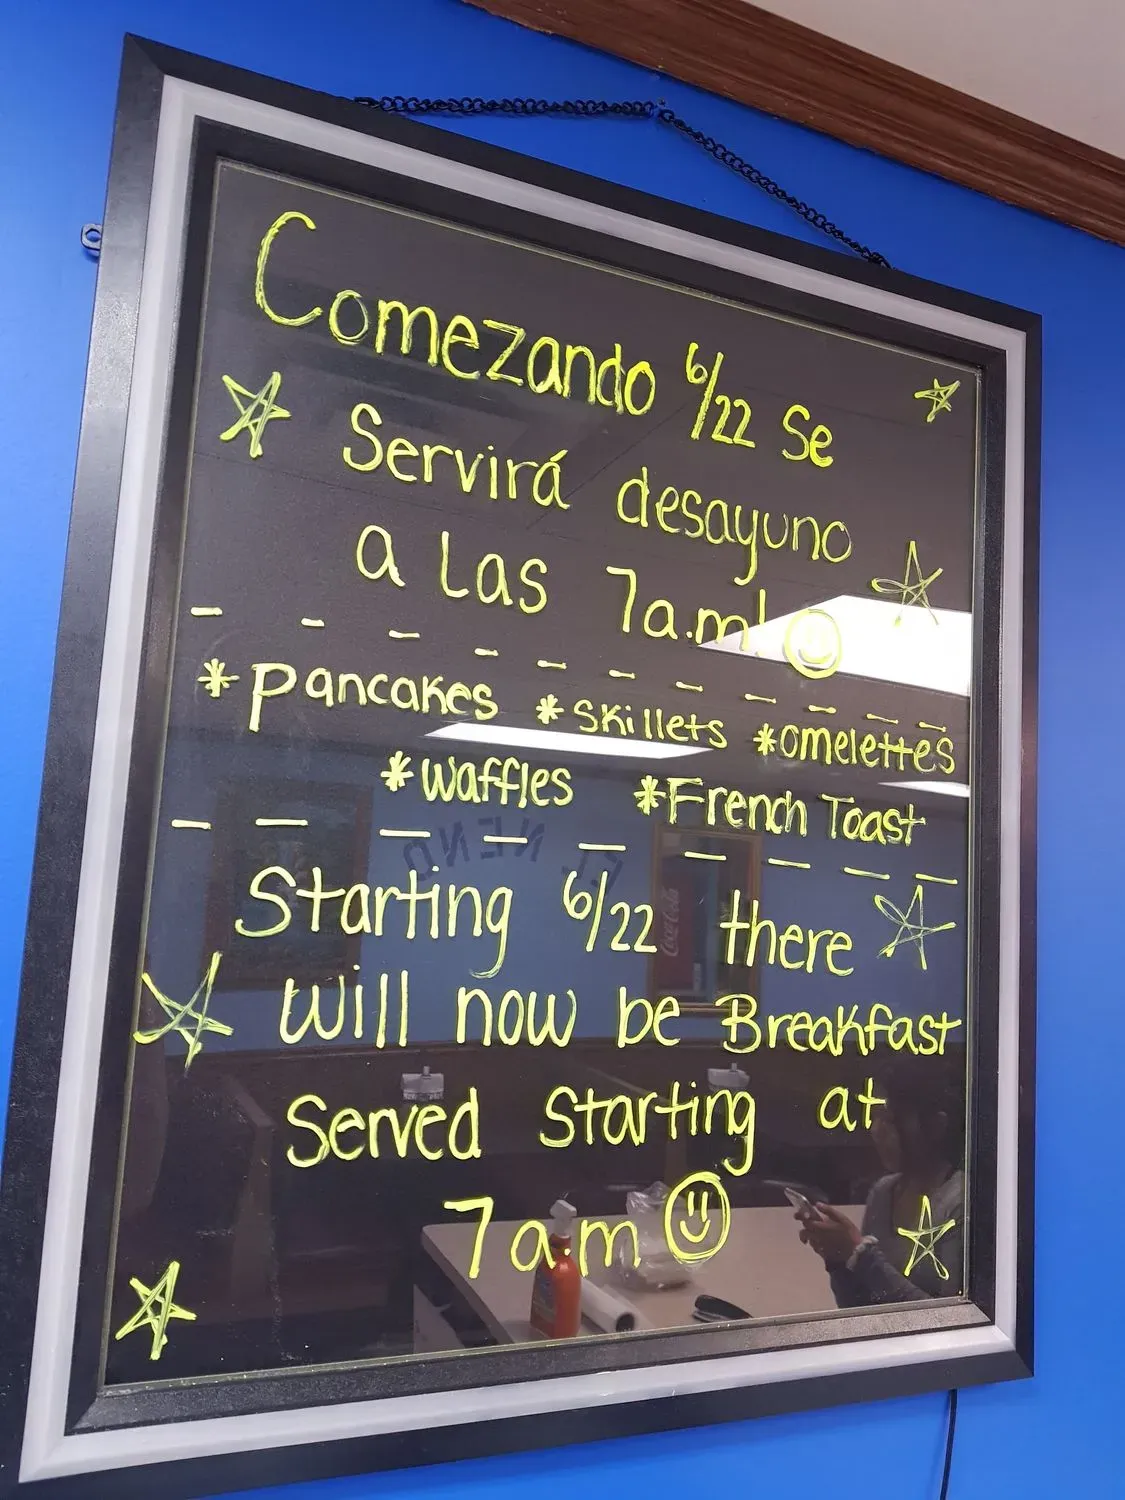 Comezando 6/22 Se
Servirá desayuno
a las 7a.m!
*Pancakes *skillets *omelettes
*Waffles *French Toast
EL NENO
Coca-Cola
Starting 6/22 there
will now be Breakfast
Served starting at
7a.m